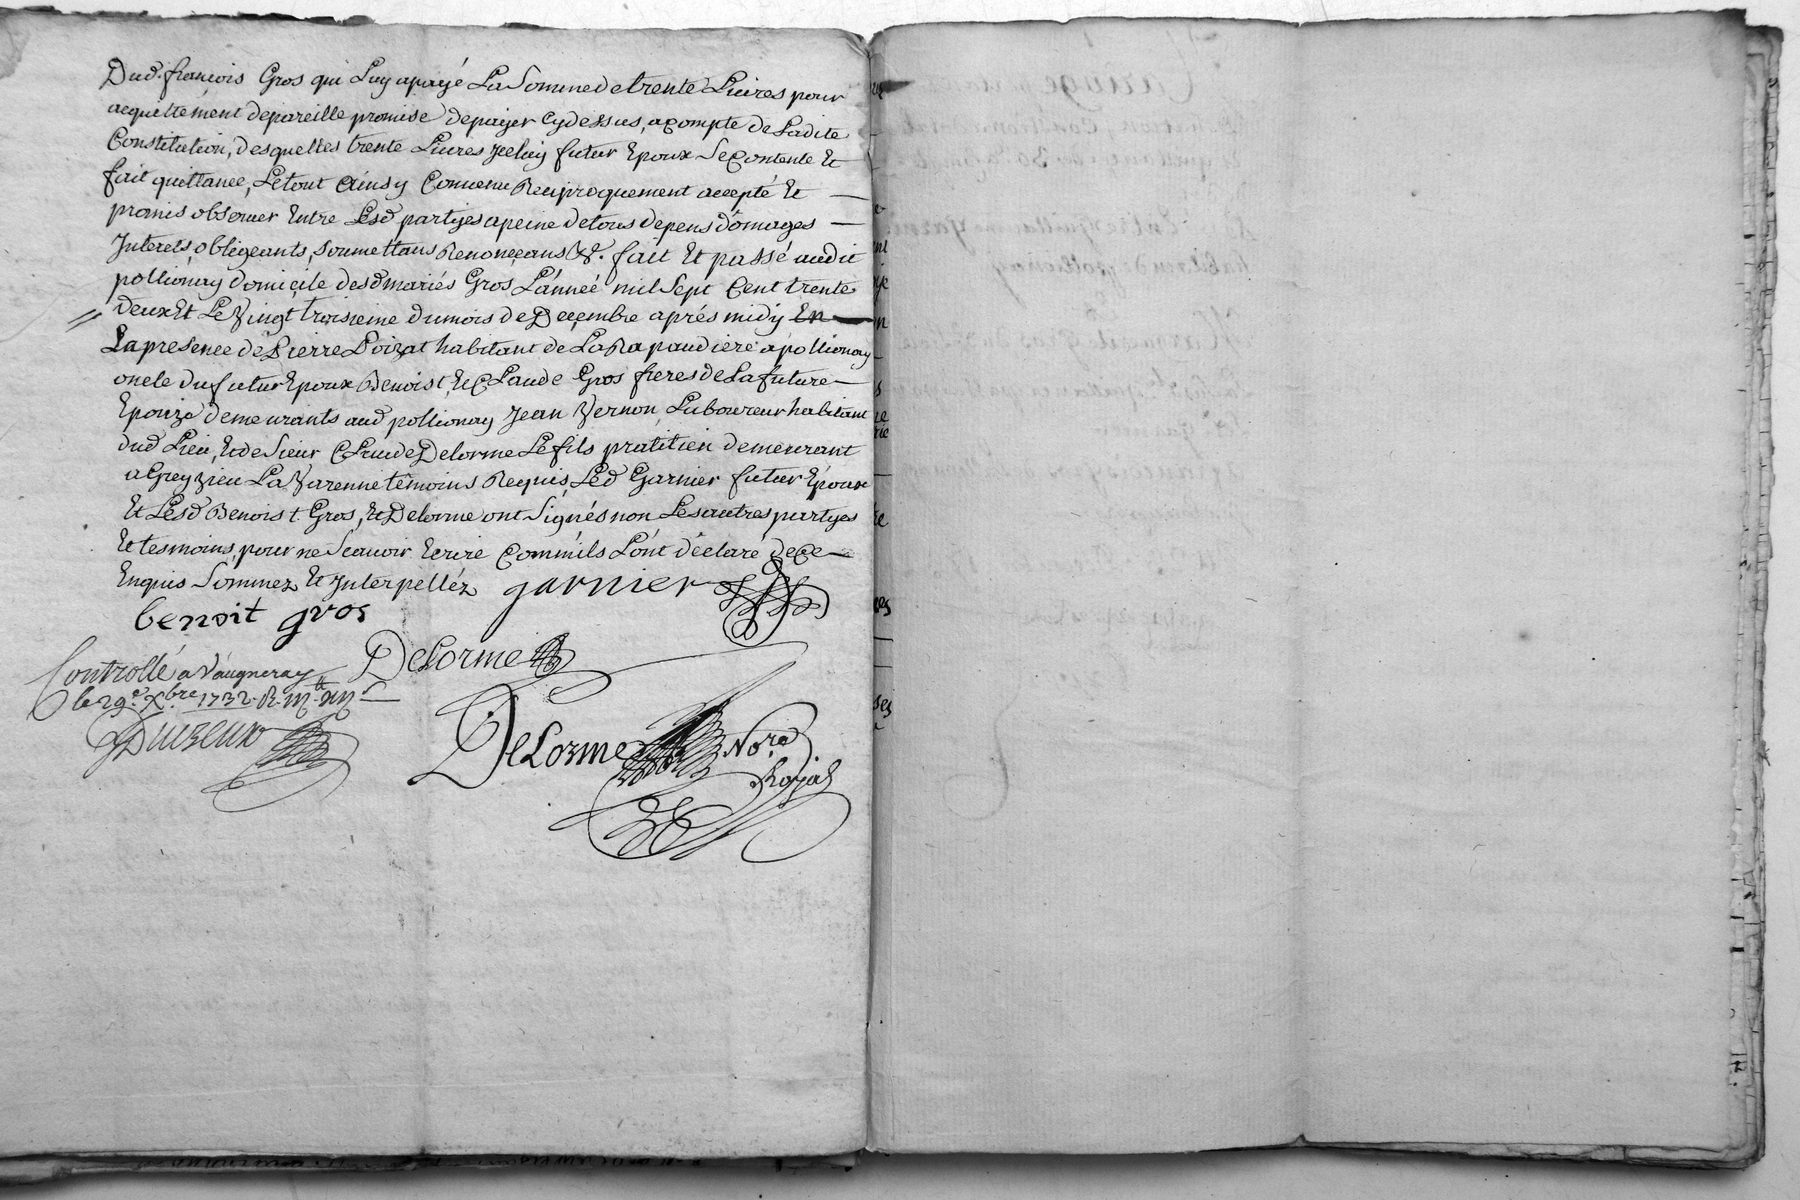 Dud. francois Gros qui Luy apayé La Somme de trente Livres pour
acquittement depareille promise depayer Cydessus, acompte de Ladite
Constitution, desquelles trente Livres jceluy futur Epoux Se Contente Et
fait quittance, Letout Ainsy Convenu Reciproquement accepté Et
promis observer Entre Lesd partyes apeine detous depens domages
Interets, obligeants, soumettans Renonçeans &. fait Et passé audit
pollionay domicile desd mariés Gros L'année mil Sept Cent trente
deux Et Le Vingt troisieme dumois de Decembre aprés midy En
La presence de Pierre Poizat habitant de La Rapaudiere apollionay
oncle du futur Epoux Benoist, Et Claude Gros freres de La future
Epouze demeurants aud pollionay Jean Vernon, Laboureur habitant
dud Lieu, Et de Sieur Claude Delorme Le fils pratitien demeurant
a Greyzieu La Varenne témoins Requis, Led Garnier futur Epoux
Et Lesd Benoist Gros, Et Delorme ont Signés non Les autres partyes
Et tesmoins, pour ne Scauoir Ecrire Comm'ils L'ont déclaré dece
Enquis Sommez Et Jnterpelléz garnier
benoit gros
DeLorme
Controllé a Vaugneray
le 29.e Xbre 1732. R.
Duizeux
DeLorme No.re
Royal